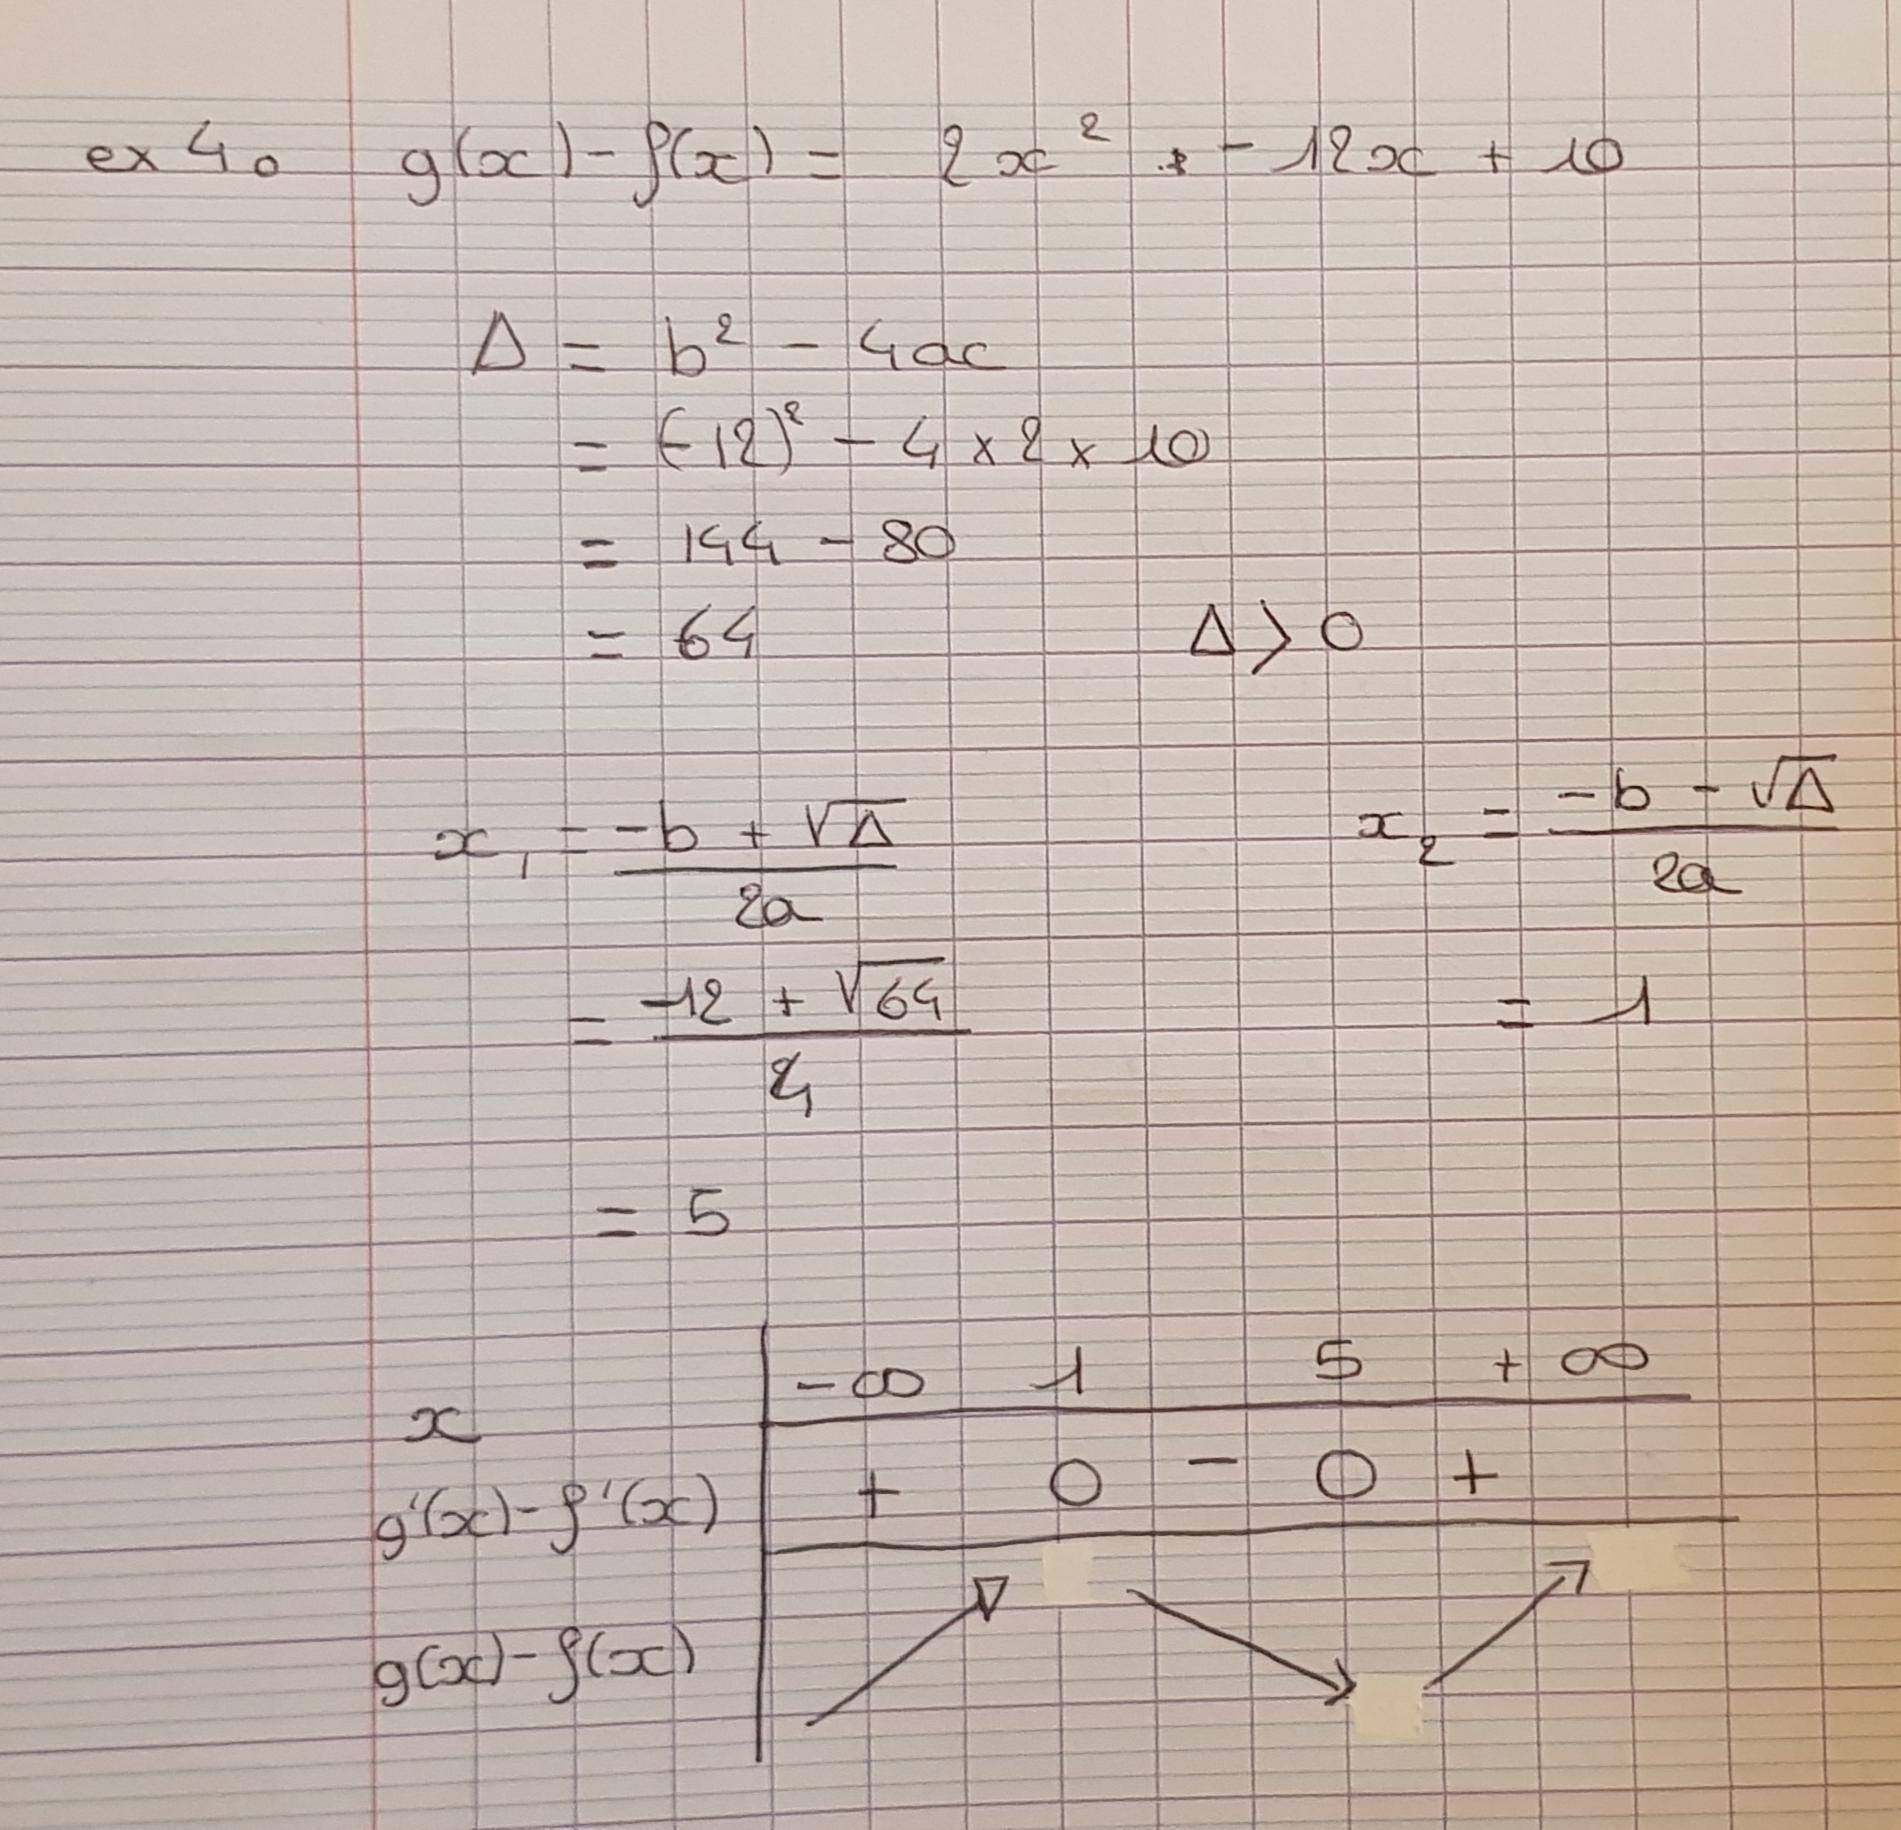 ex 40 g(x) - f(x) = 2x² - 12x + 10
Δ = b² - 4ac
= (-12)² - 4 x 2 x 10
= 144 - 80
= 64 Δ > 0
x₁ = (-b + √Δ) / 2a x₂ = (-b - √Δ) / 2a
= (-12 + √64) / 4 = 1
= 5
x -∞ 1 5 +∞
g'(x) - f'(x) + 0 - 0 +
g(x) - f(x)